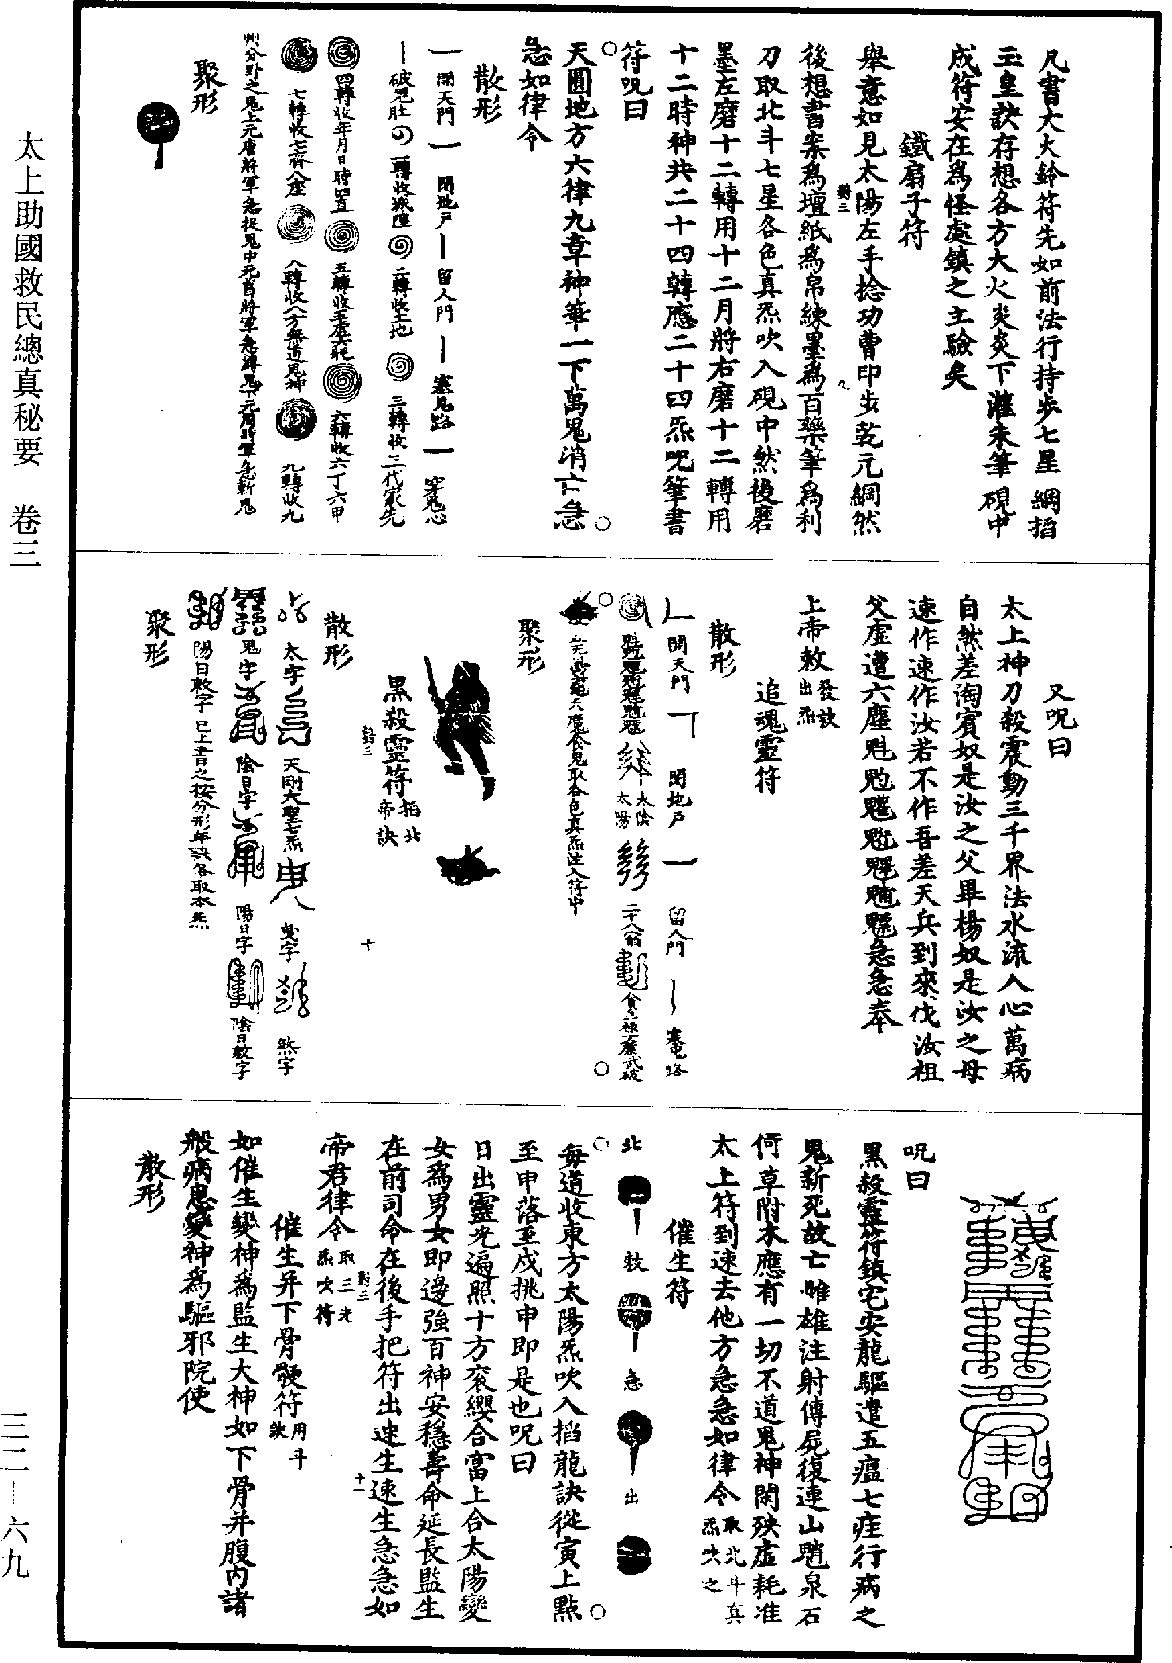 凡書大火鈴符先如前法行持步七星綱掐
玉皇訣存想各方大火炎炎下灌朱筆硯中
成符安在爲怪處鎮之主驗矣
鐵扇子符
舉意如見太陽左手捻功曹印步乾元綱然
後想書案爲壇紙爲帛練墨爲百藥筆爲利
刀取北斗七星各色真炁吹入硯中然後磨
墨左磨十二轉用十二月將右磨十二轉用
十二時神共二十四轉應二十四炁呪筆書
符呪曰
天圓地方六律九章神筆一下萬鬼消亡急
急如律令
散形
開天門 閉地戶 留人門 塞鬼路 穿鬼心
破鬼肚 一轉收城隍 二轉收土地 三轉收三代家先
四轉收年月日時置 五轉收 六轉收六丁六甲
七轉收七齊八座 八轉收八方無道鬼神 九轉收九
州分野之鬼上元唐將軍急捉鬼中元葛將軍急縛鬼下元周將軍急斬鬼
聚形
又呪曰
太上神刀殺震動三千界法水流入心萬病
自然差淘賓奴是汝之父畢楊奴是汝之母
速作速作汝若不作吾差天兵到來伐汝祖
父虛遭六塵魁䰢魓急急奉
上帝敕 發訣出炁
追魂靈符
散形
開天門 閉地戶 留人門 塞鬼路
太陰 太陽 二十八宿 貪巨祿文廉武破
天 食鬼取各色真炁注入符中
聚形
黑殺靈符 掐北帝訣
散形
太字 天剛大聖七炁 鬼字 煞字
鬼字 陰日字 陽日字 陰日敕字
陽日敕字 已上書之按分形年訣各取本炁
聚形
呪曰
黑殺靈符鎮宅安龍驅遣五瘟七疰行病之
鬼新死故亡雌雄注射傳屍復連山魈泉石
何草附木應有一切不道鬼神閑殃虛耗准
太上符到速去他方急急如律令 取北斗真炁吹之
催生符
北 敕 急 出
每道收東方太陽炁吹入掐龍訣從寅上點
至申落至戌挑申即是也呪曰
日出靈光遍照十方衮纓合當上合太陽變
女爲男女即邊強百神安穩壽命延長監生
在前司命在後手把符出速生速生急急如
帝君律令 取三光炁吹符
催生并下骨髓符 用斗訣
如催生變神爲監生大神如下骨并腹內諸
般病患變神爲驅邪院使
散形
太上助國救民總真秘要 卷三
三二—六九